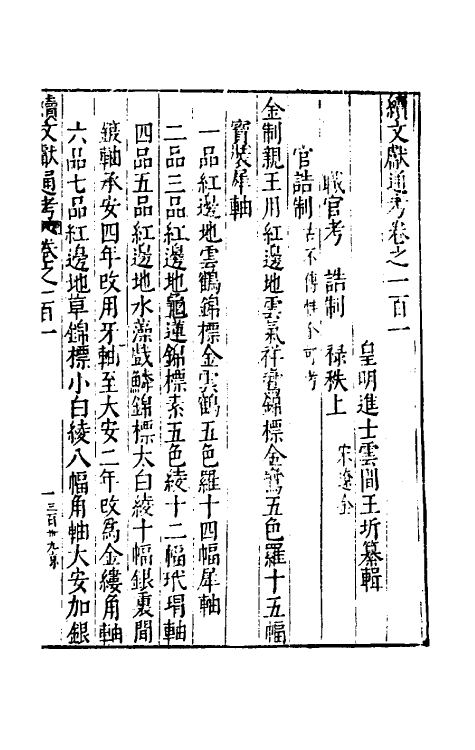 續文獻通考卷之一百一
皇明進士雲間王圻纂輯
職官考　誥制　祿秩上　宋遼金
官誥制 古不傳惟金可考
金制親王用紅邊地雲氣祥鸞錦標金鸞五色羅十五幅
寶裝犀軸
一品紅邊地雲鶴錦標金雲鶴五色羅十四幅犀軸
二品三品紅邊地龜蓮錦標素五色綾十二幅玳瑁軸
四品五品紅邊地水藻戲鱗錦標太白綾十幅銀裏間
鍍軸承安四年改用牙軸至大安二年改爲金縷角軸
六品七品紅邊地草錦標小白綾八幅角軸大安加銀
續文獻通考 卷之一百一
一